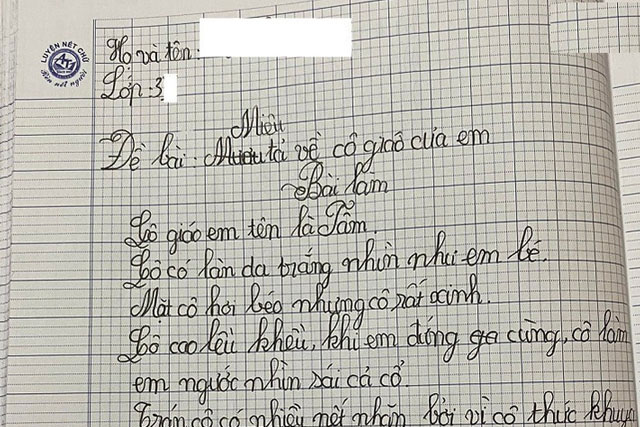 LUYỆN NÉT CHỮ
Rèn nét người
Họ và tên:
Lớp: 3
Miêu
Đề bài: Mươu tả về cô giáo của em
Bài làm
Cô giáo em tên là Tâm.
Cô có làn da trắng nhìn như em bé.
Mặt cô hơi béo nhưng cô rất xinh.
Cô cao lêu khêu, khi em đứng ga cùng, cô làm
em ngước nhìn sái cả cổ.
Trán cô có nhiều nét nhăn bởi vì cô thức khuya